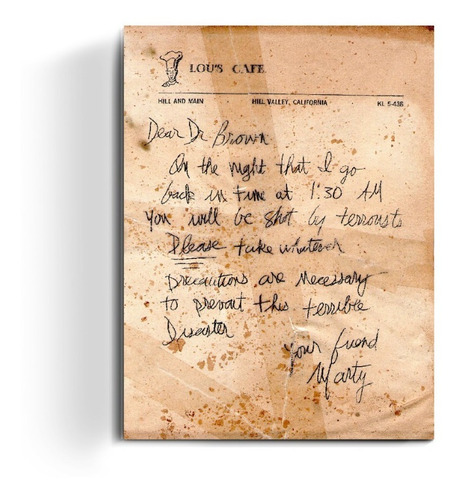 LOU'S CAFE
HILL AND MAIN HILL VALLEY, CALIFORNIA KL 5-436
Dear Dr Brown
On the night that I go
back in time at 1:30 AM
you will be shot by terrorists
Please take whatever
precautions are necessary
to prevent this terrible
Disaster
your friend
Marty